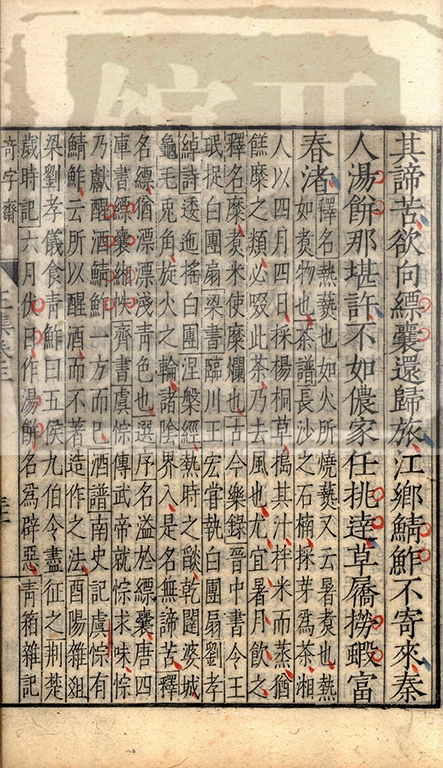 其諦苦欲向縹囊還歸旅江鄉鯖鮓不寄來秦
人湯餅那堪許不如儂家任挑達草屩撈蝦富
春渚
釋名熱爇也如火所燒爇又云暑煑也熱
如煑物也茶譜長沙之石楠採芽爲茶湘
人以四月四日採楊桐草搗其汁拌米而蒸猶
糜之類必啜此茶乃去風也尤宜暑月飲之
釋名糜煑米使糜爛也古今樂錄晉中書令王
珉捉白團扇梁書臨川王宏嘗執白團扇劉孝
綽詩逶迤搖白團涅槃經熱時之燄乾闥婆城
龜毛兎角旋火之輪諸陰界入是名無諦苦釋
名縹猶漂漂淺青色也選序名溢於縹囊唐四
庫書縹囊緗帙齊書虞悰傳武帝就悰求味悰
乃獻醒酒鯖鮓一方而已酒譜南史記虞悰有
鯖鮓云所以醒酒而不著造作之法酉陽雜俎
梁劉孝儀食青鮓曰五侯九伯令盡征之荆楚
歲時記六月伏日作湯餅名爲辟惡青箱雜記
奇字齋